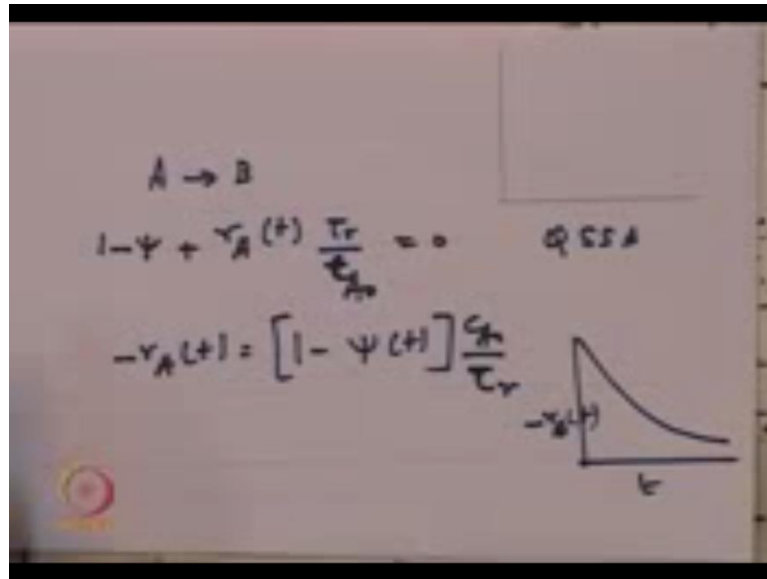 A → B
1-ψ + r_A(t) τ_r/C_A0 = 0 QSSA
-r_A(t) = [1- ψ(t)] C_A0/τ_r
-r_A(t)
t